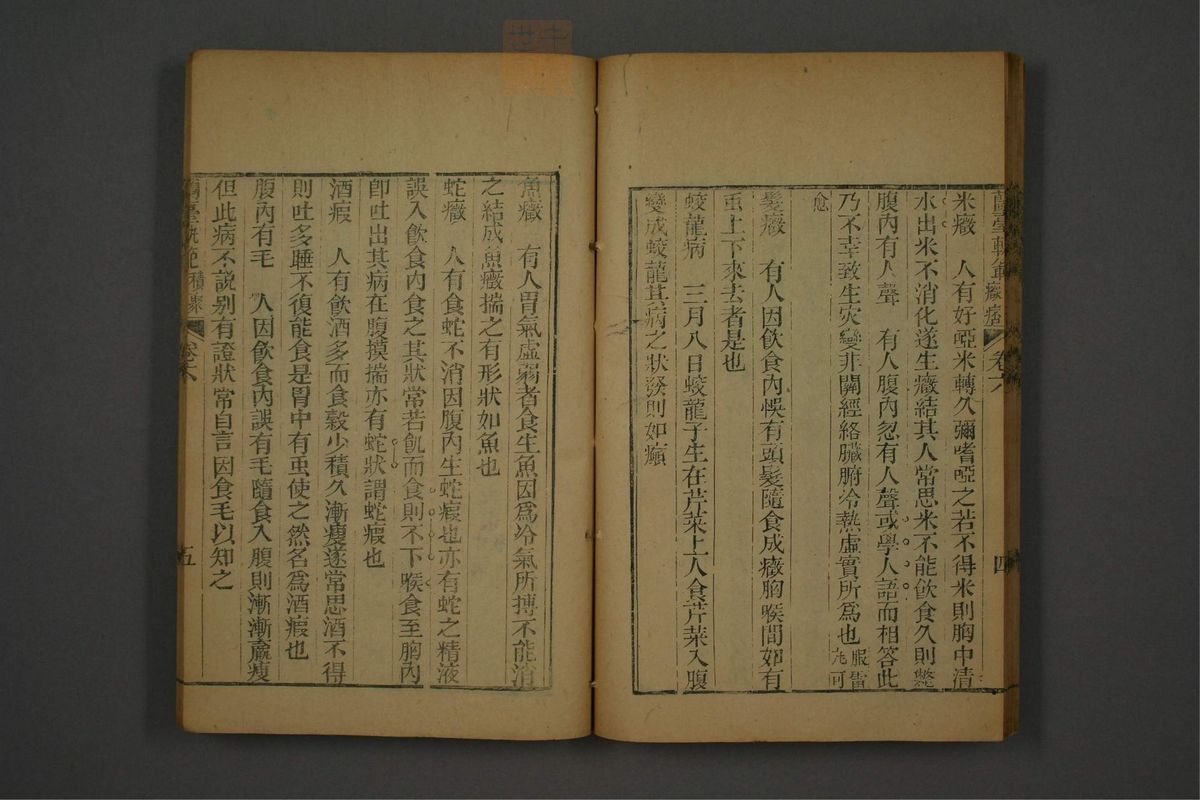 卷六
四
米癥　人有好啞米轉久彌嗜啞之若不得米則胸中清
水出米不消化遂生癥結其人常思米不能飲食久則斃
腹內有人聲　有人腹內忽有人聲或學人語而相答此
乃不幸致生灾變非關經絡臟腑冷熱虛實所爲也服雷丸可
愈
髮癥　有人因飲食內悞有頭髮隨食成癥胸喉間如有
䖝上下來去者是也
蛟龍病　三月八日蛟龍子生在芹菜上人食芹菜入腹
變成蛟龍其病之狀發則如癲
魚癥　有人胃氣虛弱者食生魚因爲冷氣所搏不能消
之結成魚癥揣之有形狀如魚也
蛇癥　人有食蛇不消因腹內生蛇瘕也亦有蛇之精液
誤入飲食內食之其狀常若飢而食則不下喉食至胸內
卽吐出其病在腹摸揣亦有蛇狀謂蛇瘕也
酒瘕　人有飲酒多而食穀少積久漸瘦遂常思酒不得
則吐多睡不復能食是胃中有䖝使之然名爲酒瘕也
腹內有毛　人因飲食內誤有毛隨食入腹則漸漸羸瘦
但此病不說别有證狀常自言因食毛以知之
卷六
五